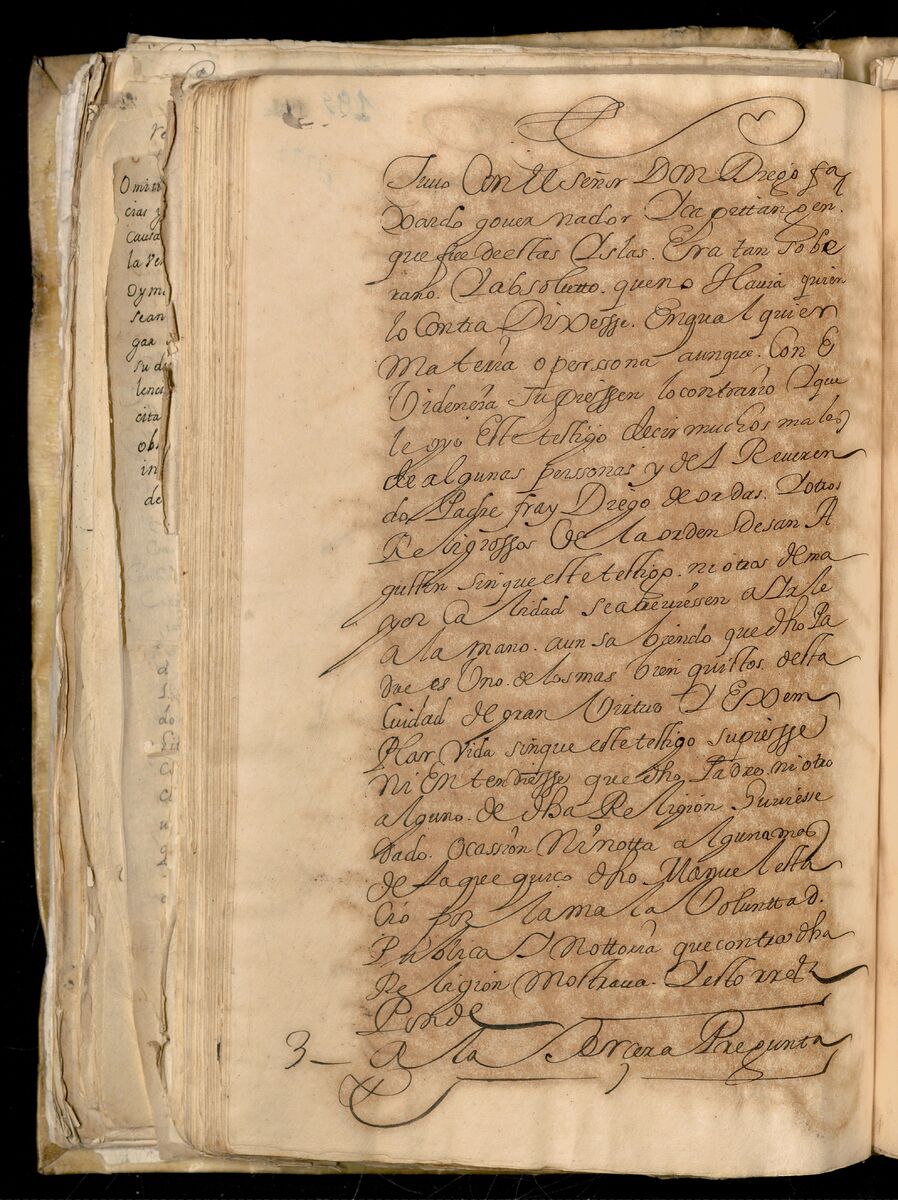 Tuuo Con el señor Don Diego fa
xardo gouernador Y capittan gen.
que fue de estas Yslas. Era tan sobe
rano. Y absolutto. que no Hauia quien
lo Contra Dixesse. En qualquier
Materia o perssona aunque. Con E
Videncia supiessen lo contrario Y que
le oyo este testigo decir muchos males
de algunas perssonas y del Reueren
do Padre fray Diego de ordas. Y otros
Religiossos De la orden de san A
gustin sin que este testigo. ni otros de ma
yor Calidad se atreuiessen a Yrle
a la mano. aun sabiendo que dho Pa
dre es Uno. de los mas bien quistos desta
Ciudad de gran Virtud Y Exem
plar Vida sin que este testigo supiesse
Ni Entendiesse que dho Padre. ni otro
alguno. de dha Religion. Huuiesse
Dado. ocassion Ni notta alguna mas
de la que quiso dho. Manuel esta
cio por la mala Voluntad.
Publica Y Nottoria que contra dha
Religion Mostraua. Y esto rres
Ponde
3 A la Tercera Pregunta
Omis
cias y
Causa
la re
Dym
sean
gar
su d
lenci
cita
ob
in
de